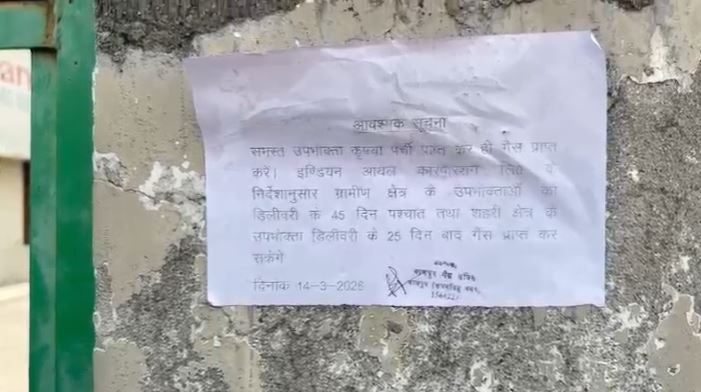 आवश्यक सूचना
समस्त उपभोक्ता कृपया पर्ची प्राप्त कर ही गैस प्राप्त
करें। इण्डियन आयल कारपोरेशन लि० के
निर्देशानुसार ग्रामीण क्षेत्र के उपभोक्ताओं को
डिलीवरी के 45 दिन पश्चात तथा शहरी क्षेत्र के
उपभोक्ता डिलीवरी के 25 दिन बाद गैस प्राप्त कर
सकेंगे
दिनांक 14-3-2026
गैस